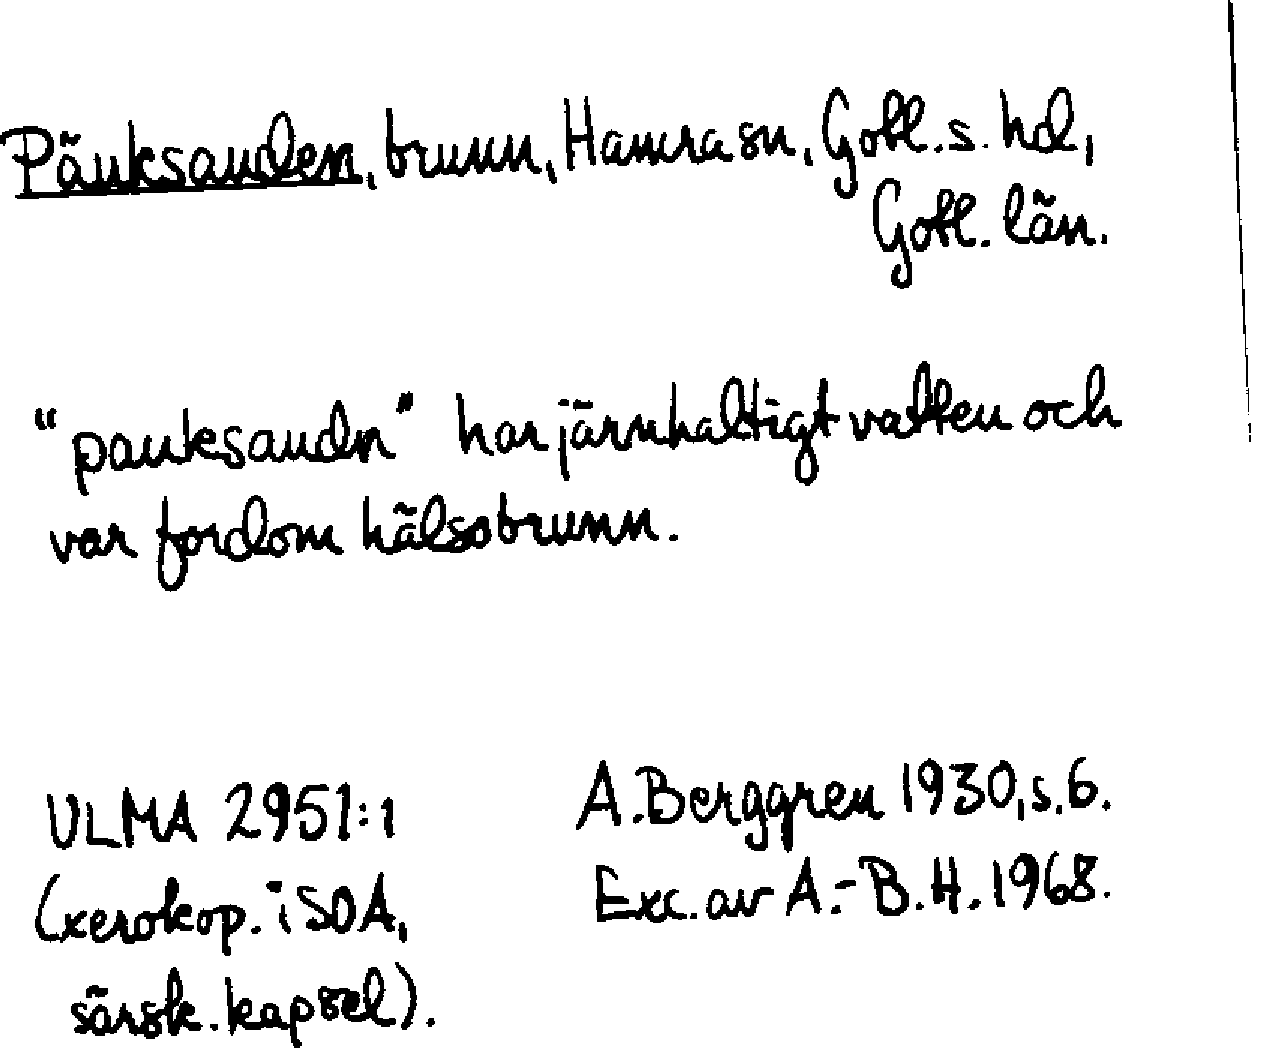 Päuksauden, brunn, Hamra sn, Gotl. s. hd,
Gotl. län.
"pauksaudn" har järnhaltigt vatten och
var fordom hälsobrunn.
ULMA 2951:1
(xerokop. i SOA,
särsk. kapsel).
A. Berggren 1930, s. 6.
Exc. av A.-B. H. 1968.